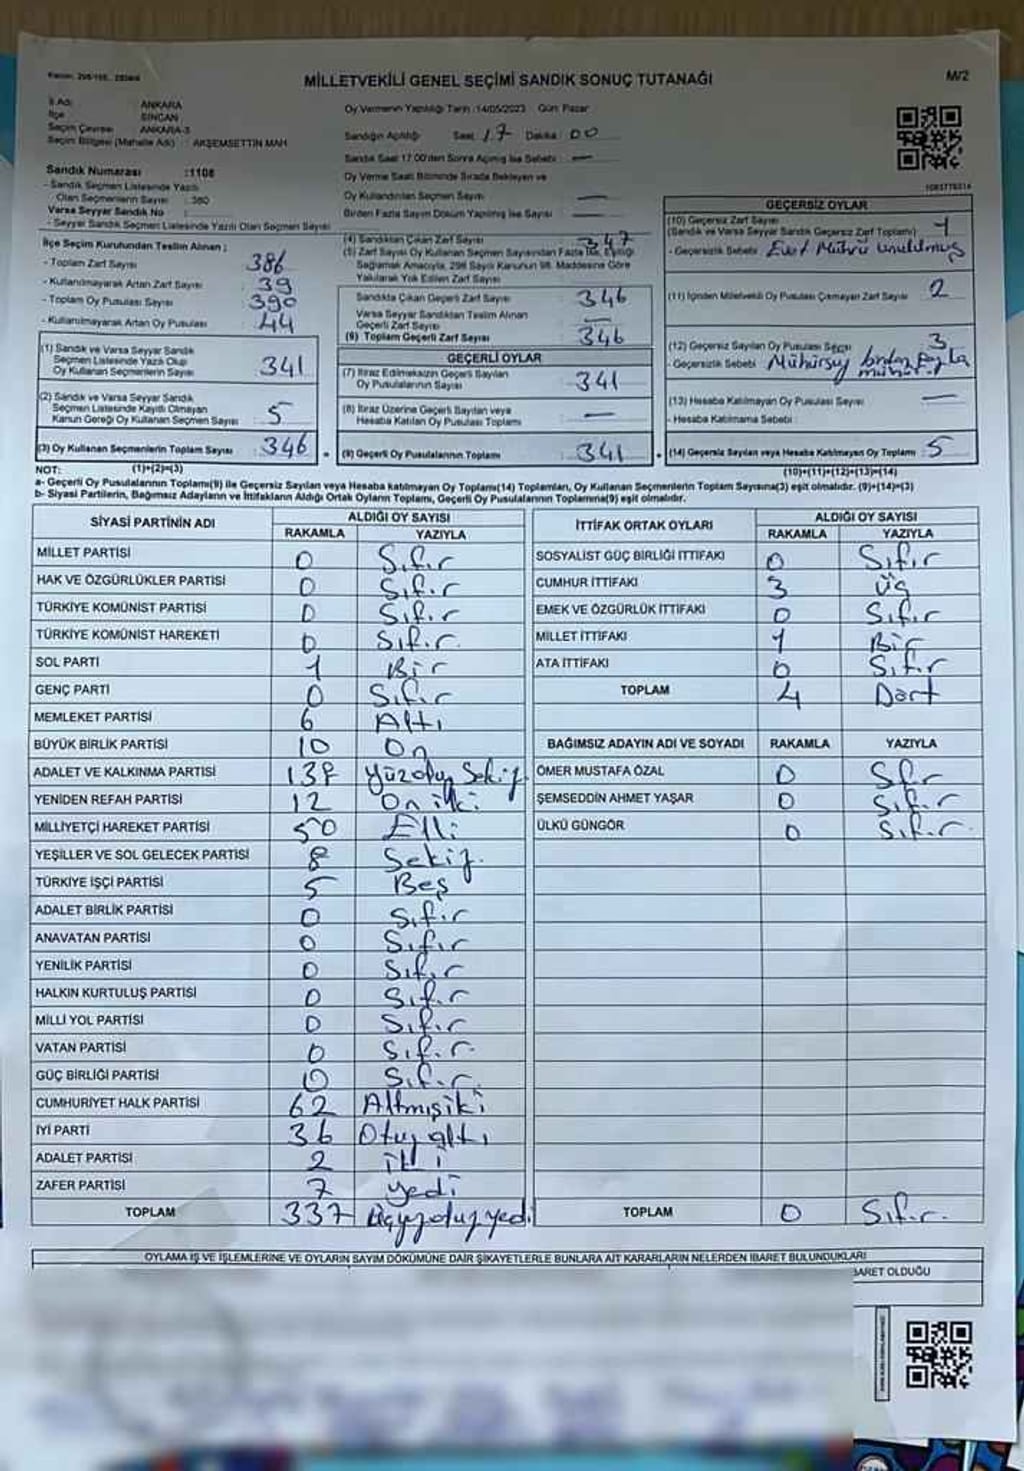 MİLLETVEKİLİ GENEL SEÇİMİ SANDIK SONUÇ TUTANAĞI
M/2
İl Adı : ANKARA
İlçe : SİNCAN
Seçim Çevresi : ANKARA-3
Seçim Bölgesi (Mahalle Adı) : AKŞEMSETTİN MAH.
Sandık Numarası :1108
- Sandık Seçmen Listesinde Yazılı
Olan Seçmenlerin Sayısı : 380
Varsa Seyyar Sandık No :
- Seyyar Sandık Listesinde Yazılı Olan Seçmen Sayısı
İlçe Seçim Kurulundan Teslim Alınan ;
- Toplam Zarf Sayısı 386
- Kullanılmayarak Artan Zarf Sayısı 39
- Toplam Oy Pusulası Sayısı 390
- Kullanılmayarak Artan Oy Pusulası 44
(1) Sandık ve Varsa Seyyar Sandık
Seçmen Listesinde Yazılı Olup
Oy Kullanan Seçmenlerin Sayısı 341
(2) Sandık ve Varsa Seyyar Sandık
Seçmen Listesinde Kayıtlı Olmayan
Kanun Gereği Oy Kullanan Seçmen Sayısı 5
(3) Oy Kullanan Seçmenlerin Toplam Sayısı : 346
Oy Vermenin Yapıldığı Tarih :14/05/2023 Gün: Pazar
Sandığın Açılışı Saat : 17 Dakika : 00
Sandık Saat 17:00'den Sonra Açılmış İse Sebebi : —
Oy Verme Saati Bitiminde Sırada Bekleyen ve
Oy Kullandırılan Seçmen Sayısı —
Birden Fazla Sayım Döküm Yapılmış İse Sayısı —
(4) Sandıktan Çıkan Zarf Sayısı 347
(5) Zarf Sayısı Oy Kullanan Seçmen Sayısından Fazla İse, Eşitliği
Sağlamak Amacıyla, 298 Sayılı Kanunun 98. Maddesine Göre
Yakılarak Yok Edilen Zarf Sayısı
Sandıkta Çıkan Geçerli Zarf Sayısı 346
Varsa Seyyar Sandıktan Teslim Alınan
Geçerli Zarf Sayısı —
(6) Toplam Geçerli Zarf Sayısı 346
GEÇERLİ OYLAR
(7) İtiraz Edilmeksizin Geçerli Sayılan
Oy Pusulalarının Sayısı 341
(8) İtiraz Üzerine Geçerli Sayılan veya
Hesaba Katılan Oy Pusulası Toplamı —
(9) Geçerli Oy Pusulalarının Toplamı : 341
GEÇERSİZ OYLAR
(10) Geçersiz Zarf Sayısı
(Sandık ve Varsa Seyyar Sandık Geçersiz Zarf Toplamı) 1
- Geçersizlik Sebebi : Evet Mührü unutulmuş
(11) İçinden Milletvekili Oy Pusulası Çıkmayan Zarf Sayısı 2
(12) Geçersiz Sayılan Oy Pusulası Sayısı 3
- Geçersizlik Sebebi : birden fazla
(13) Hesaba Katılmayan Oy Pusulası Sayısı —
- Hesaba Katılmama Sebebi :
(14) Geçersiz Sayılan veya Hesaba Katılmayan Oy Toplamı : 5
NOT: (1)+(2)=(3) (10)+(11)+(12)+(13)=(14)
a- Geçerli Oy Pusulalarının Toplamı(9) ile Geçersiz Sayılan veya Hesaba katılmayan Oy Toplamı(14) Toplamları, Oy Kullanan Seçmenlerin Toplam Sayısına(3) eşit olmalıdır. (9)+(14)=(3)
b- Siyasi Partilerin, Bağımsız Adayların ve İttifakların Aldığı Ortak Oyların Toplamı, Geçerli Oy Pusulalarının Toplamına(9) eşit olmalıdır.
SİYASİ PARTİNİN ADI ALDIĞI OY SAYISI
RAKAMLA YAZIYLA
MİLLET PARTİSİ 0 Sıfır
HAK VE ÖZGÜRLÜKLER PARTİSİ 0 Sıfır
TÜRKİYE KOMÜNİST PARTİSİ 0 Sıfır
TÜRKİYE KOMÜNİST HAREKETİ 0 Sıfır
SOL PARTİ 1 Bir
GENÇ PARTİ 0 Sıfır
MEMLEKET PARTİSİ 6 Altı
BÜYÜK BİRLİK PARTİSİ 10 On
ADALET VE KALKINMA PARTİSİ 138 Yüzotuz Sekiz
YENİDEN REFAH PARTİSİ 12 On iki
MİLLİYETÇİ HAREKET PARTİSİ 50 Elli
YEŞİLLER VE SOL GELECEK PARTİSİ 8 Sekiz
TÜRKİYE İŞÇİ PARTİSİ 5 Beş
ADALET BİRLİK PARTİSİ 0 Sıfır
ANAVATAN PARTİSİ 0 Sıfır
YENİLİK PARTİSİ 0 Sıfır
HALKIN KURTULUŞ PARTİSİ 0 Sıfır
MİLLİ YOL PARTİSİ 0 Sıfır
VATAN PARTİSİ 0 Sıfır
GÜÇ BİRLİĞİ PARTİSİ 0 Sıfır
CUMHURİYET HALK PARTİSİ 62 Altmışiki
İYİ PARTİ 36 Otuz altı
ADALET PARTİSİ 2 İki
ZAFER PARTİSİ 7 Yedi
TOPLAM 337 Üçyüzotuzyedi
İTTİFAK ORTAK OYLARI ALDIĞI OY SAYISI
RAKAMLA YAZIYLA
SOSYALİST GÜÇ BİRLİĞİ İTTİFAKI 0 Sıfır
CUMHUR İTTİFAKI 3 Üç
EMEK VE ÖZGÜRLÜK İTTİFAKI 0 Sıfır
MİLLET İTTİFAKI 1 Bir
ATA İTTİFAKI 0 Sıfır
TOPLAM 4 Dört
BAĞIMSIZ ADAYIN ADI VE SOYADI RAKAMLA YAZIYLA
ÖMER MUSTAFA ÖZAL 0 Sfır
ŞEMSEDDİN AHMET YAŞAR 0 Sıfır
ÜLKÜ GÜNGÖR 0 Sıfır
TOPLAM 0 Sıfır
OYLAMA İŞ VE İŞLEMLERİNE VE OYLARIN SAYIM DÖKÜMÜNE DAİR ŞİKAYETLERLE BUNLARA AİT KARARLARIN NELERDEN İBARET BULUNDUKLARI
BARET OLDUĞU